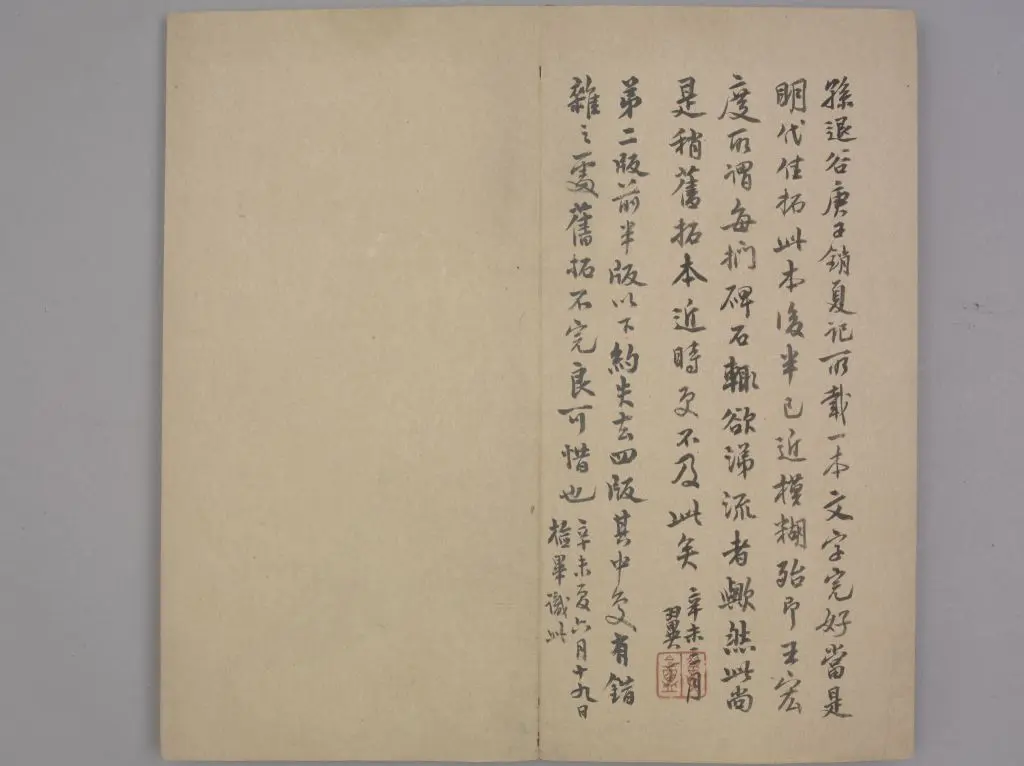 孫退谷庚子銷夏記所載一本文字完好當是
明代佳拓此本後半已近模糊殆即王宏
度所謂每捫碑石輒欲涕流者歟然此尚
是稍舊拓本近時更不及此矣
辛未三月
翼
第二版前半版以下約失去四版其中更有錯
雜之處舊拓不完良可惜也
辛未夏六月十九日
檢畢識此